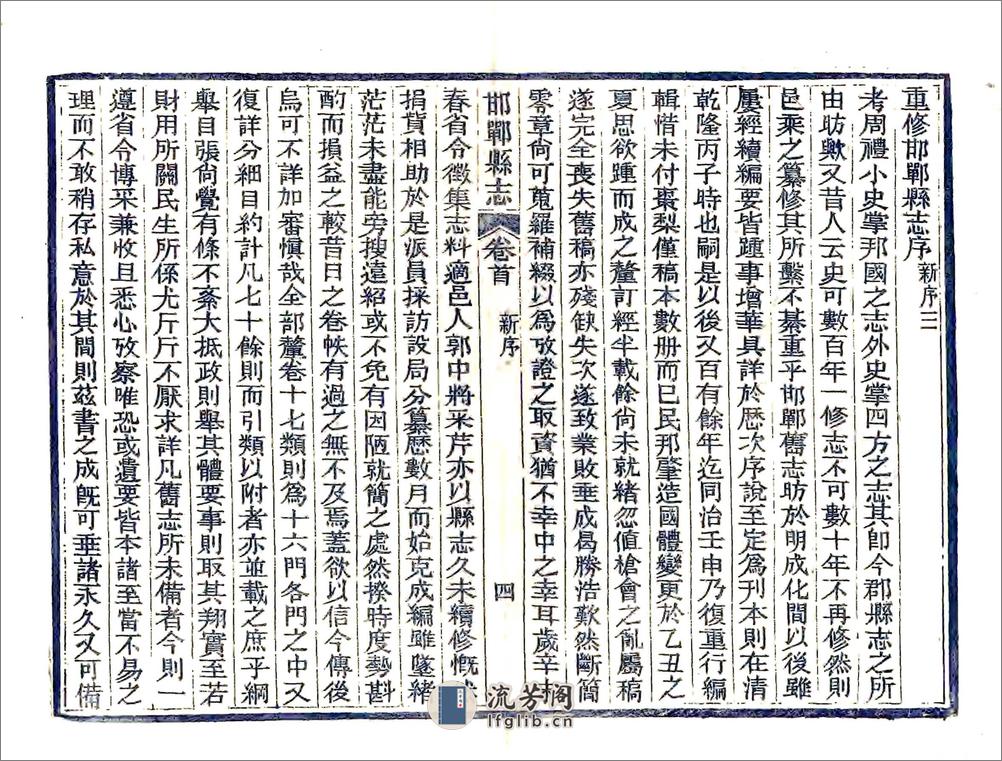 重修邯鄲縣志序 新序三
考周禮小史掌邦國之志外史掌四方之志其卽今郡縣志之所
由昉歟又昔人云史可數百年一修志不可數十年不再修然則
邑乘之纂修其所繫不綦重乎邯鄲舊志昉於明成化間以後雖
屢經續編要皆踵事增華具詳於歷次序說至定爲刊本則在清
乾隆丙子時也嗣是以後又百有餘年迄同治壬申乃復重行編
輯惜未付棗梨僅稿本數册而巳民邦肇造國體變更於乙丑之
夏思欲踵而成之釐訂經半載餘尙未就緒忽値槍會之亂屬稿
遂完全喪失舊稿亦殘缺失次遂致業敗垂成曷勝浩歎然斷簡
零章尙可蒐羅補綴以爲攷證之取資猶不幸中之幸耳歲辛未
邯鄲縣志 卷首 新序 四
春省令徵集志料適邑人郭中將釆芹亦以縣志久未續修慨然
捐貲相助於是派員採訪設局分纂歷數月而始克成編雖墜緖
茫茫未盡能旁搜遠紹或不免有因陋就簡之處然揆時度勢斟
酌而損益之較昔日之卷帙有過之無不及焉蓋欲以信今傳後
烏可不詳加審愼哉全部釐卷十七類則爲十六門各門之中又
復詳分細目約計凡七十餘則而引類以附者亦並載之庶乎綱
舉目張尙覺有條不紊大抵政則舉其體要事則取其翔實至若
財用所關民生所係尤斤斤不厭求詳凡舊志所未備者今則一
遵省令博采兼收且悉心攷察唯恐或遺要皆本諸至當不易之
理而不敢稍存私意於其間則茲書之成旣可垂諸永久又可備
流芳閣
lfglib.cn